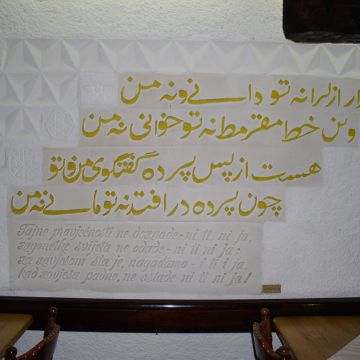 ار ازل را نه تو دانے و نه من
وین خط مقرمط نه تو خوانی نه من
هست از پس پرده گفتگوی من و تو
چون پرده درافتد نه تو مانے نه من
Tajne pravječnosti ne doznade - ni ti, ni ja,
zagonetke svijeta ne odade - ni ti, ni ja;
za zavjesom šta je, - i ti i ja,
kad zavjesa padne, ne ostade ni ti ni ja!